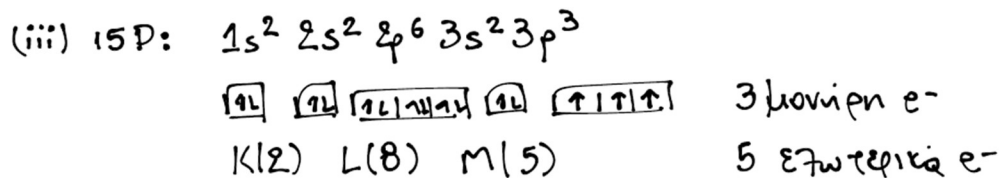 (iii) 15P: 1s² 2s² 2p⁶ 3s² 3p³
↑↓ ↑↓ ↑↓|↑↓|↑↓ ↑↓ ↑|↑|↑ 3 μονήρη e-
K(2) L(8) M(5) 5 εξωτερικά e-